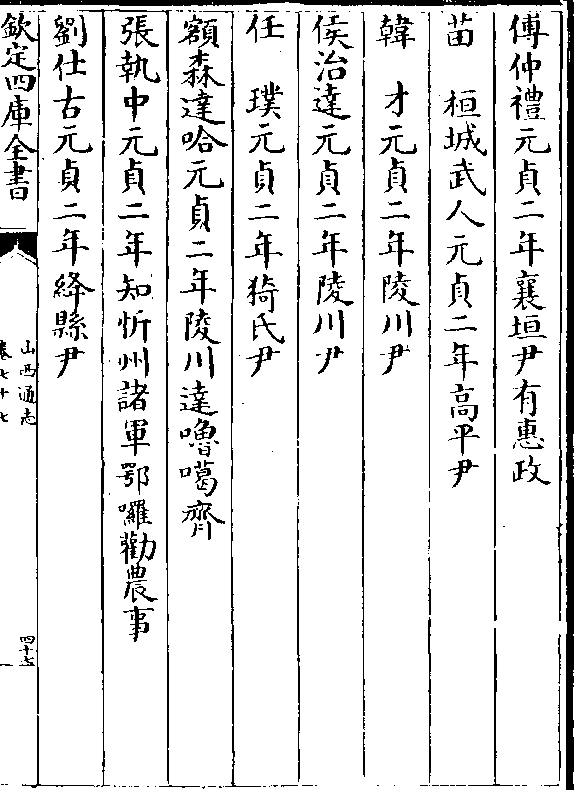 傅仲禮元貞二年襄垣尹有惠政
苗　桓城武人元貞二年高平尹
韓　才元貞二年陵川尹
侯治達元貞二年陵川尹
任　璞元貞二年猗氏尹
額森達哈元貞二年陵川達嚕噶齊
張執中元貞二年知忻州諸軍鄂囉勸農事
劉仕古元貞二年絳縣尹
欽定四庫全書
山西通志
卷七十七
四十七